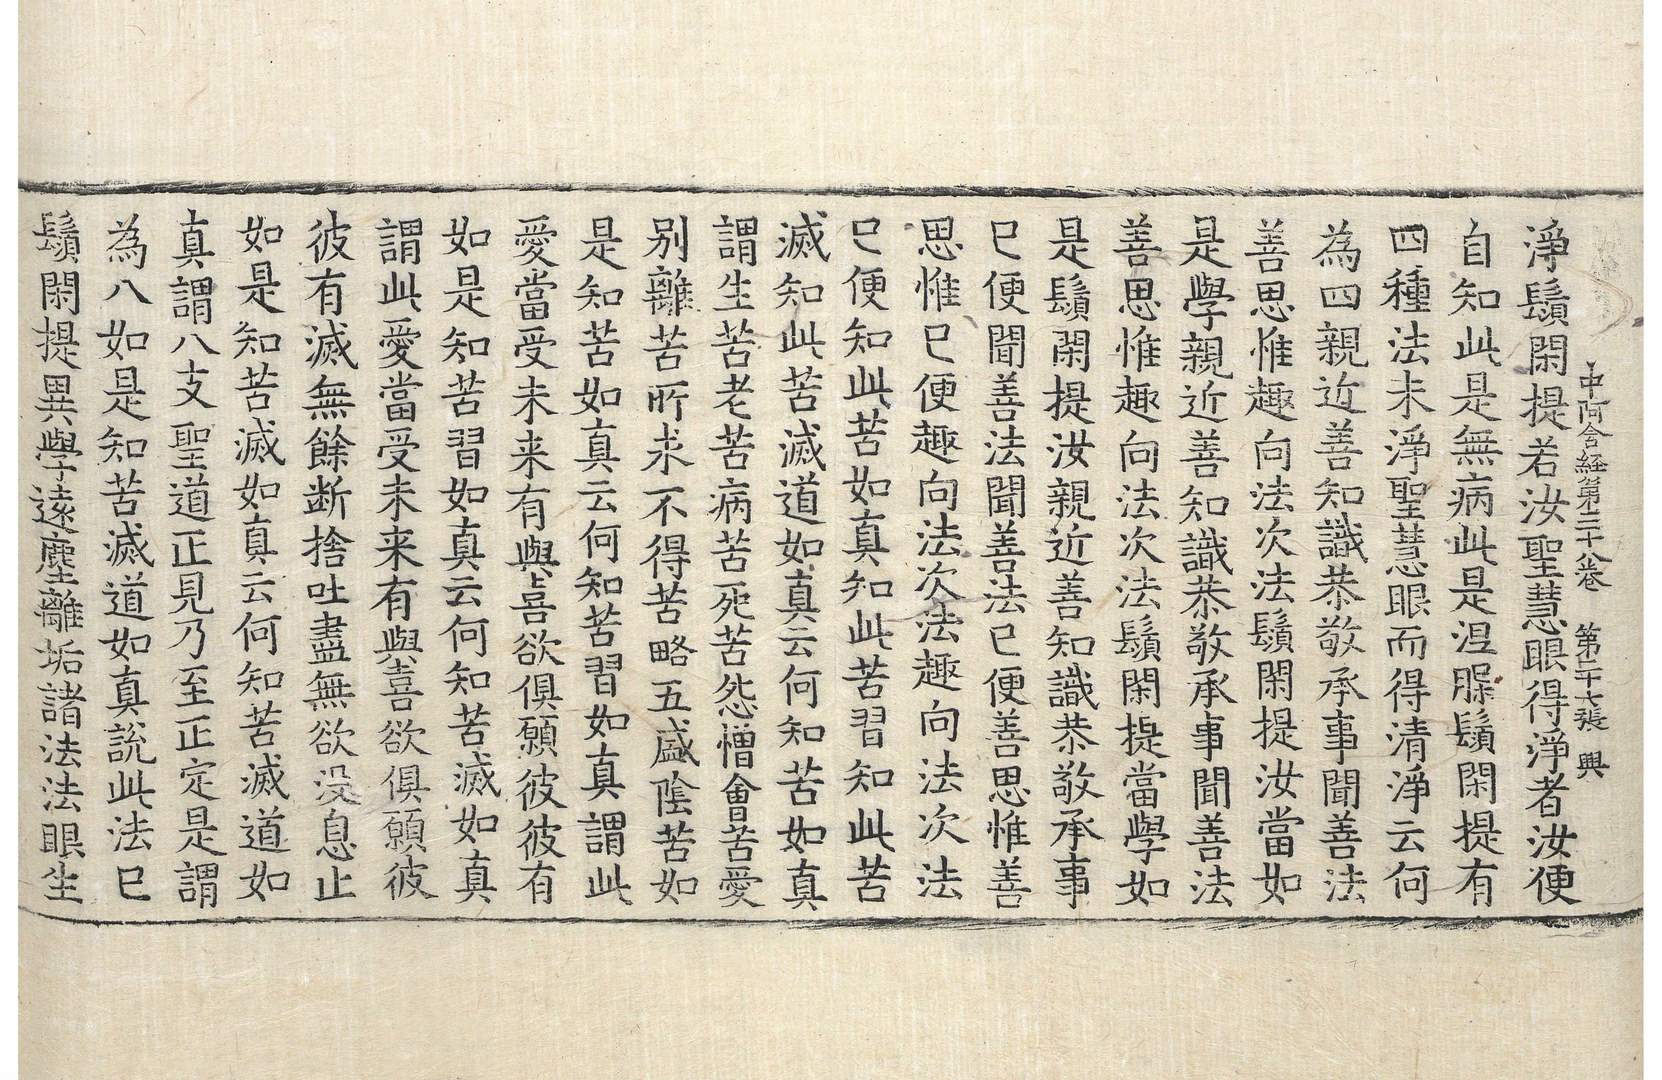 中阿含経第三十八卷　第二十七張　與
淨鬚閑提若汝聖慧眼得淨者汝便
自知此是無病此是涅脲鬚閑提有
四種法未淨聖慧眼而得清淨云何
為四親近善知識恭敬承事聞善法
善思惟趣向法次法鬚閑提汝當如
是學親近善知識恭敬承事聞善法
善思惟趣向法次法鬚閑提當學如
是鬚閑提汝親近善知識恭敬承事
已便聞善法聞善法已便善思惟善
思惟已便趣向法次法趣向法次法
已便知此苦如真知此苦習知此苦
滅知此苦滅道如真云何知苦如真
謂生苦老苦病苦死苦怨憎會苦愛
別離苦所求不得苦略五盛陰苦如
是知苦如真云何知苦習如真謂此
愛當受未来有與喜欲俱願彼彼有
如是知苦習如真云何知苦滅如真
謂此愛當受未来有與喜欲俱願彼
彼有滅無餘断捨吐盡無欲没息止
如是知苦滅如真云何知苦滅道如
真謂八支聖道正見乃至正定是謂
為八如是知苦滅道如真說此法已
鬚閑提異學遠塵離垢諸法法眼生